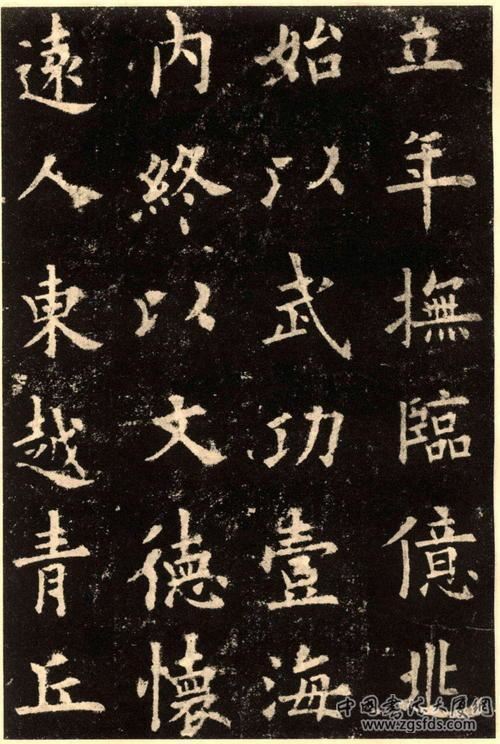 立年撫臨億兆
始以武功壹海
內終以文德懷
遠人東越青丘
中国书法大师网
www.zgsfds.com